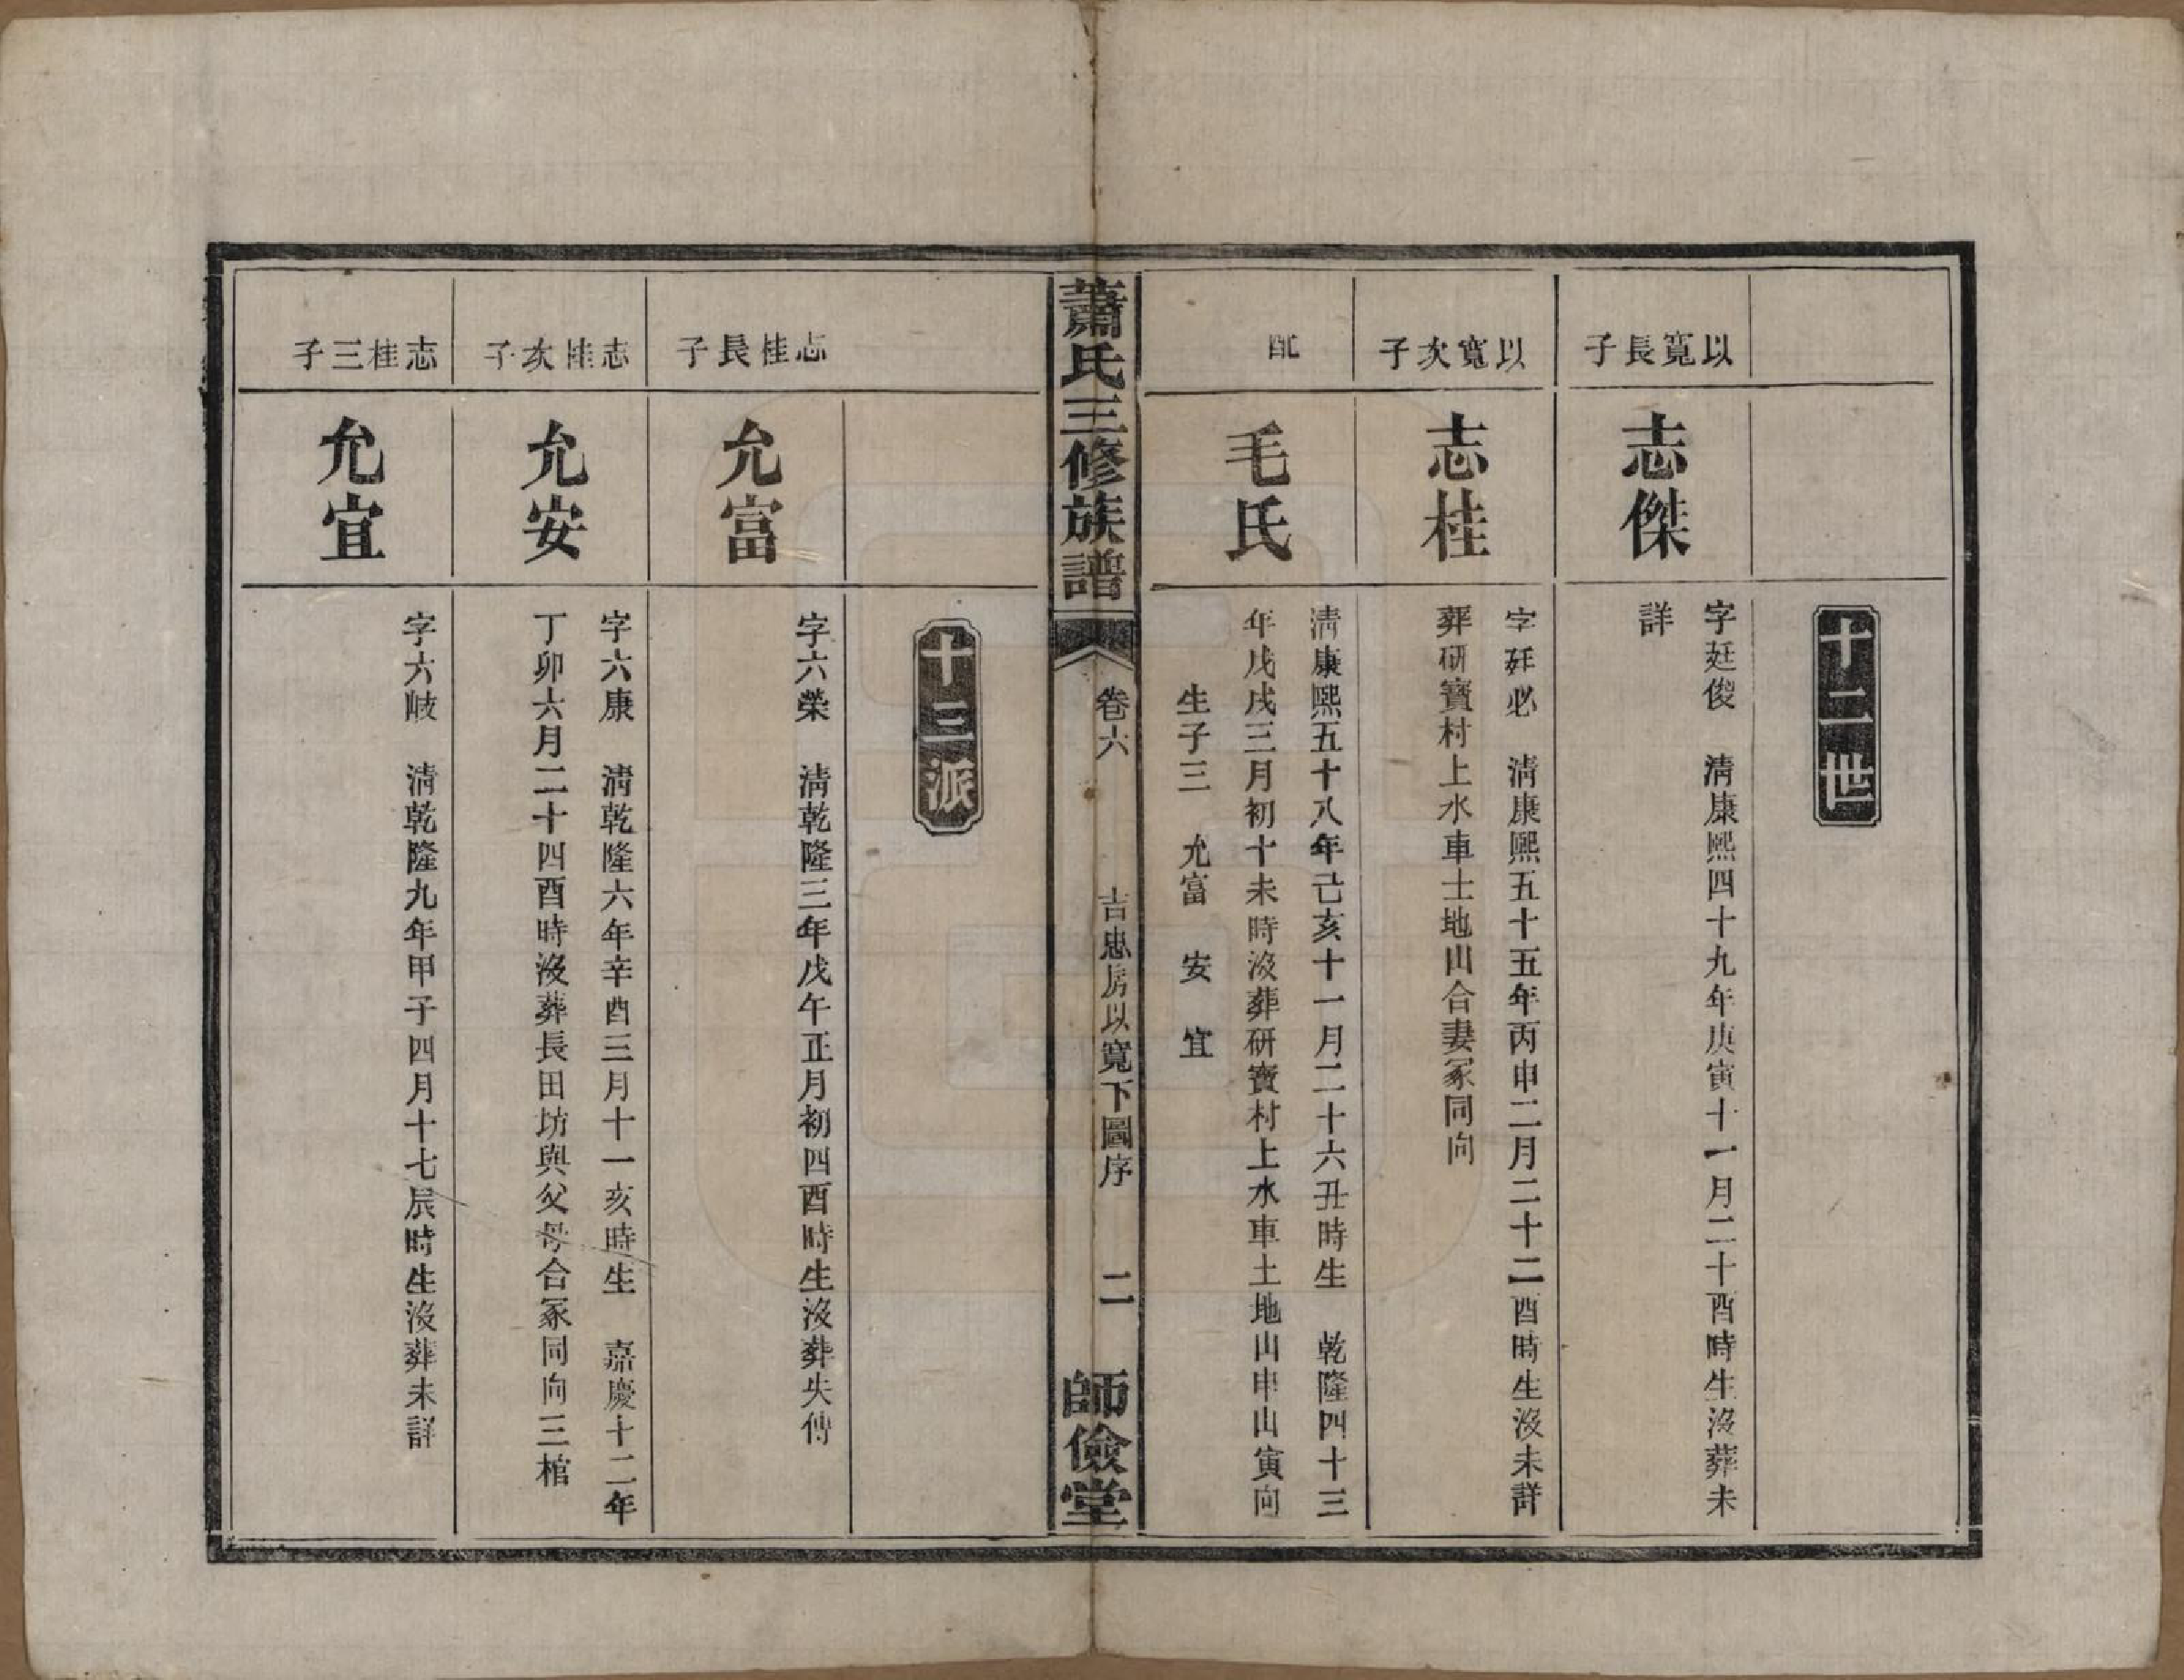 十二世
以寬長子
志傑
字廷俊　清康熙四十九年庚寅十一月二十酉時生沒葬未
詳
以寬次子
志桂
字廷必　清康熙五十五年丙申二月二十二酉時生沒未詳
葬研寶村上水車士地山合妻冢同向
配
毛氏
清康熙五十八年己亥十一月二十六丑時生　乾隆四十三
年戊戌三月初十未時沒葬研寶村上水車土地山申山寅向
生子三　允富　安　宜
蕭氏三修族譜
卷六
吉忠房以寬下圖序
二
師儉堂
十三派
志桂長子
允富
字六榮　清乾隆三年戊午正月初四酉時生沒葬失傳
志桂次子
允安
字六康　清乾隆六年辛酉三月十一亥時生　嘉慶十二年
丁卯六月二十四酉時沒葬長田坊與父母合冢同向三棺
志桂三子
允宜
字六岐　清乾隆九年甲子四月十七辰時生沒葬未詳